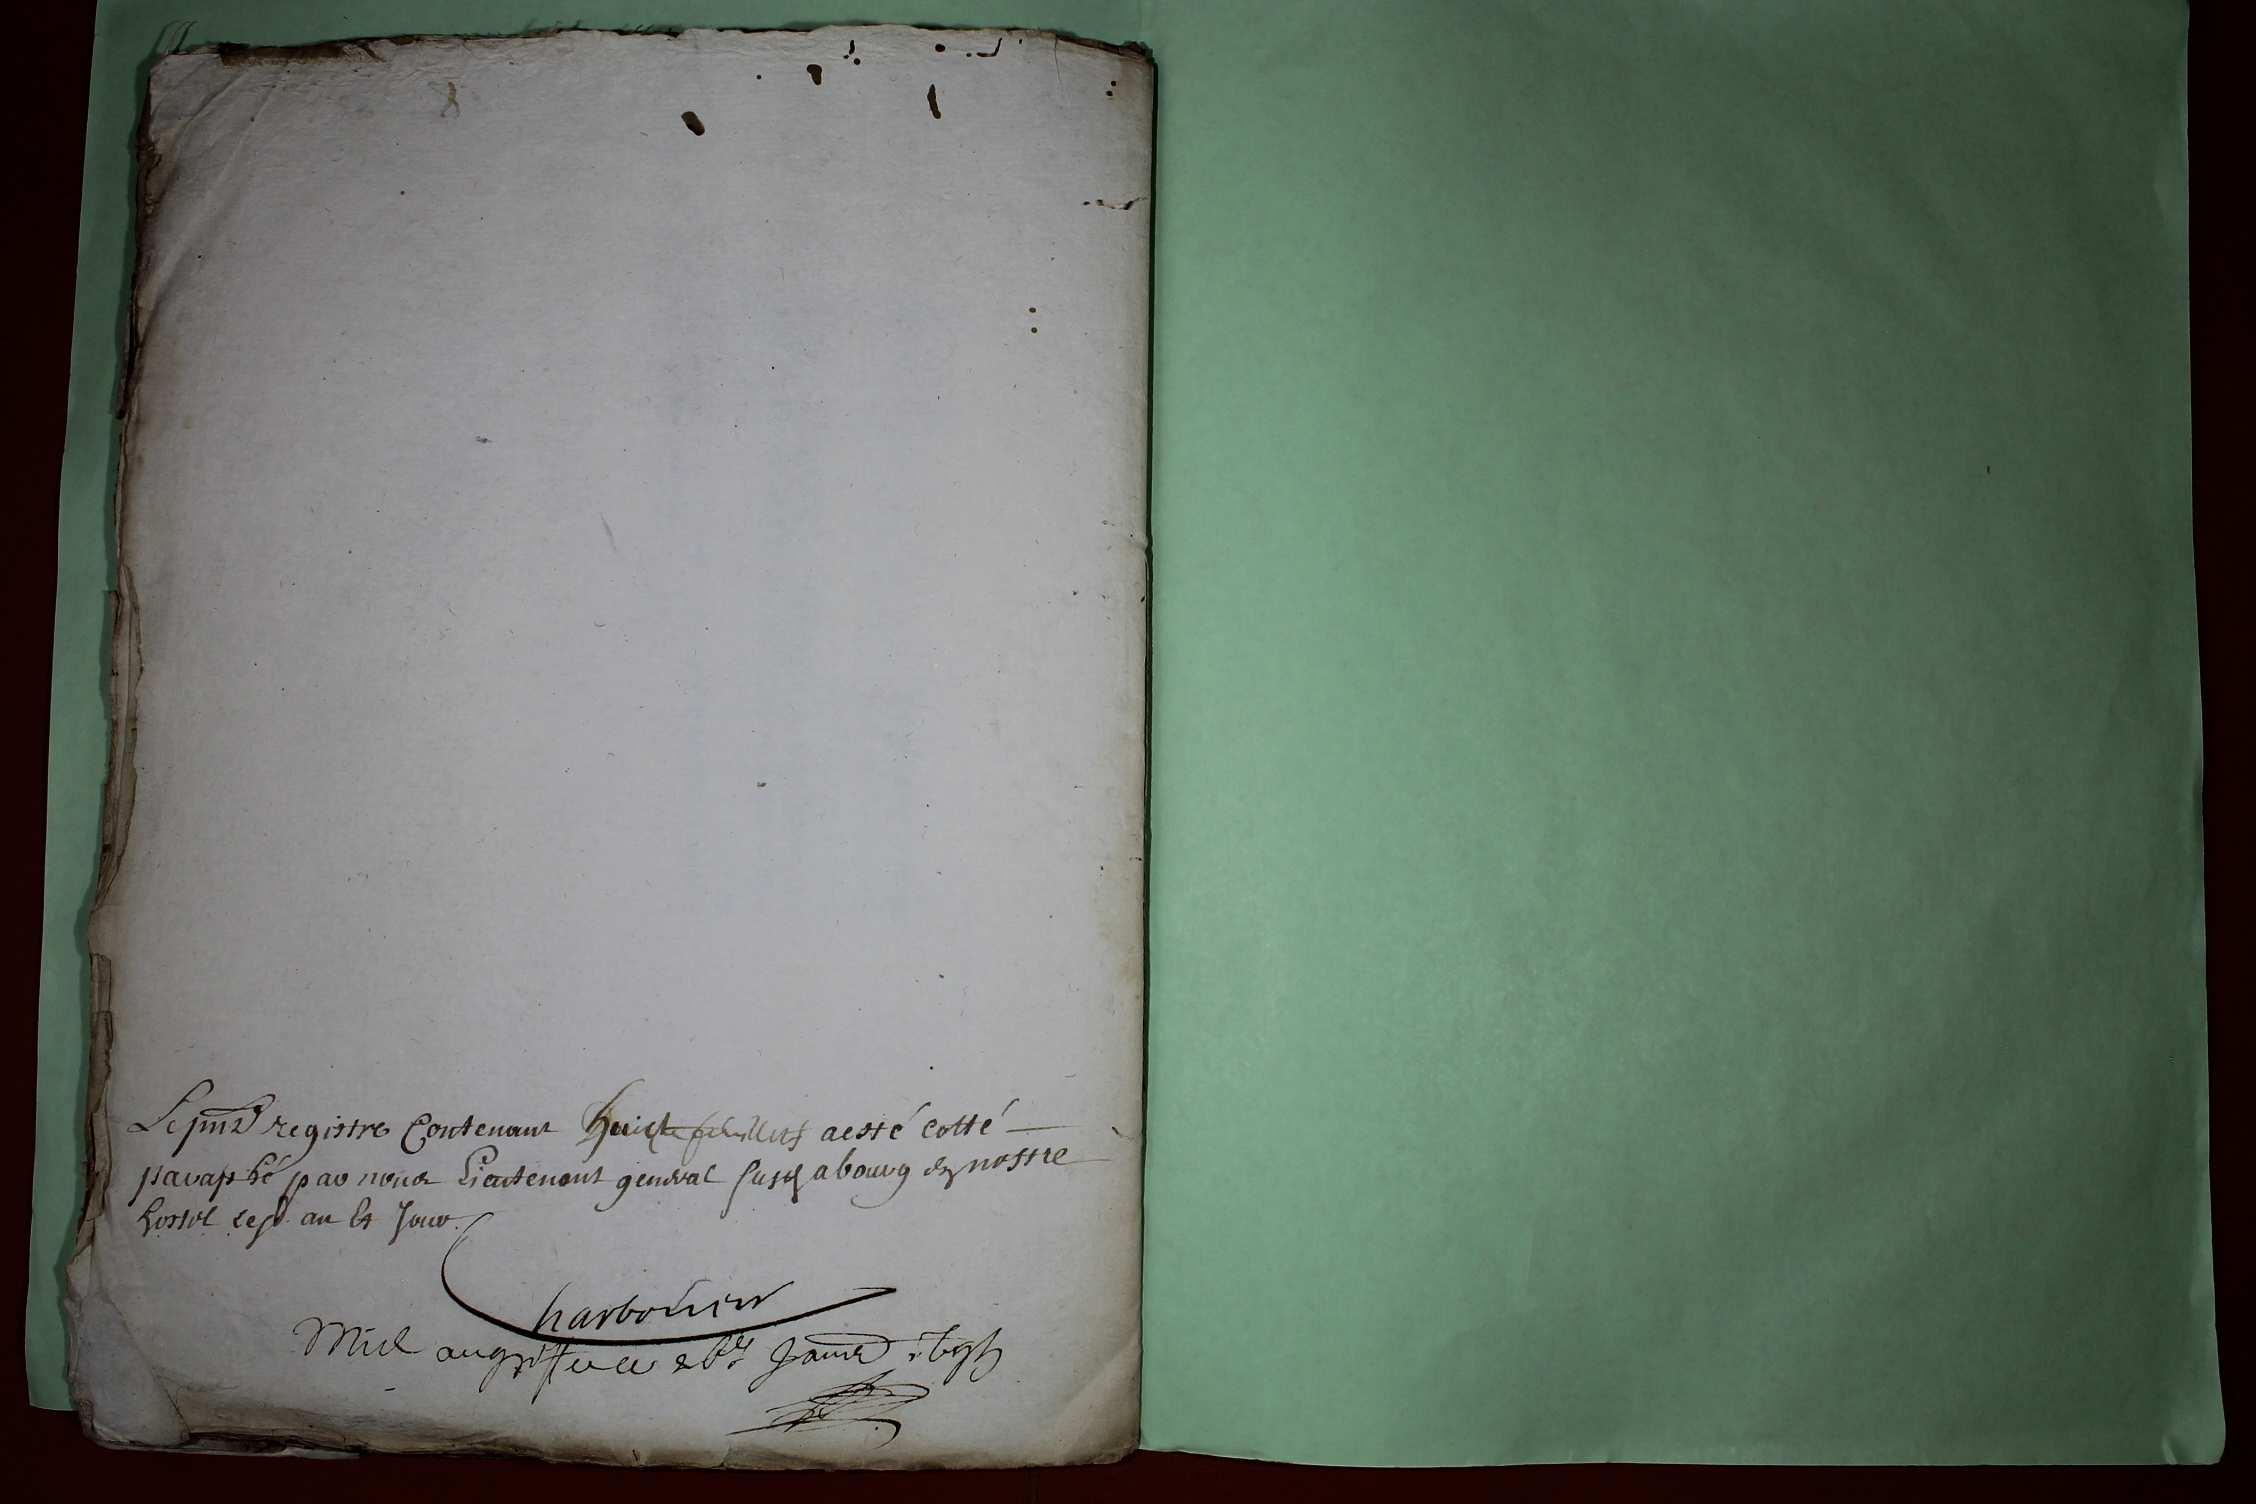 Le pnt registre Contenant huict feuillets a esté cotté
paraphé par nous Lieutenant general susd a bourg en nostre
hostel les an et Jour
Charbonier
Mis au greffe le Janv